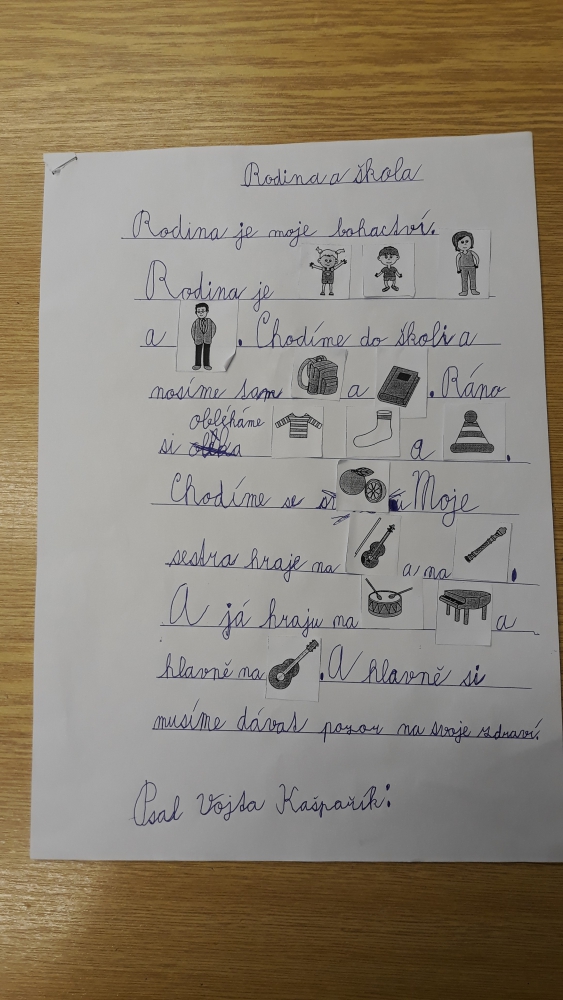 Rodina a škola
Rodina je moje bohactví.
Rodina je
a . Chodíme do školi a
nosíme tam a . Ráno
obléháme
si a .
Chodíme se Moje
sestra hraje na a na .
A já hraju na a
hlavně na . A hlavně si
musíme dávat pozor na svoje zdraví.
Psal Vojta Kašpařík: